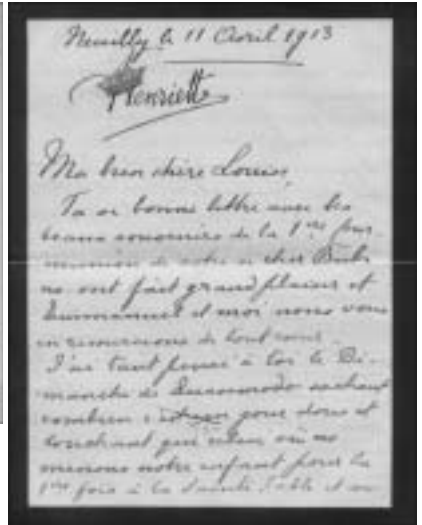 Neuilly le 11 Avril 1913
Henriette
Ma bien chère Louise,
Ta si bonne lettre avec les
beaux souvenirs de la 1re Com-
munion de votre si cher
ns ont fait grand plaisir et
Emmanuel et moi nous vous
en remercions de tout cœur.
J'ai tant pensé à toi le Di-
manche de Quasimodo sachant
combien jour doux et
touchant que celui où ns
menons notre enfant pour la
1re fois à la Sainte Table et